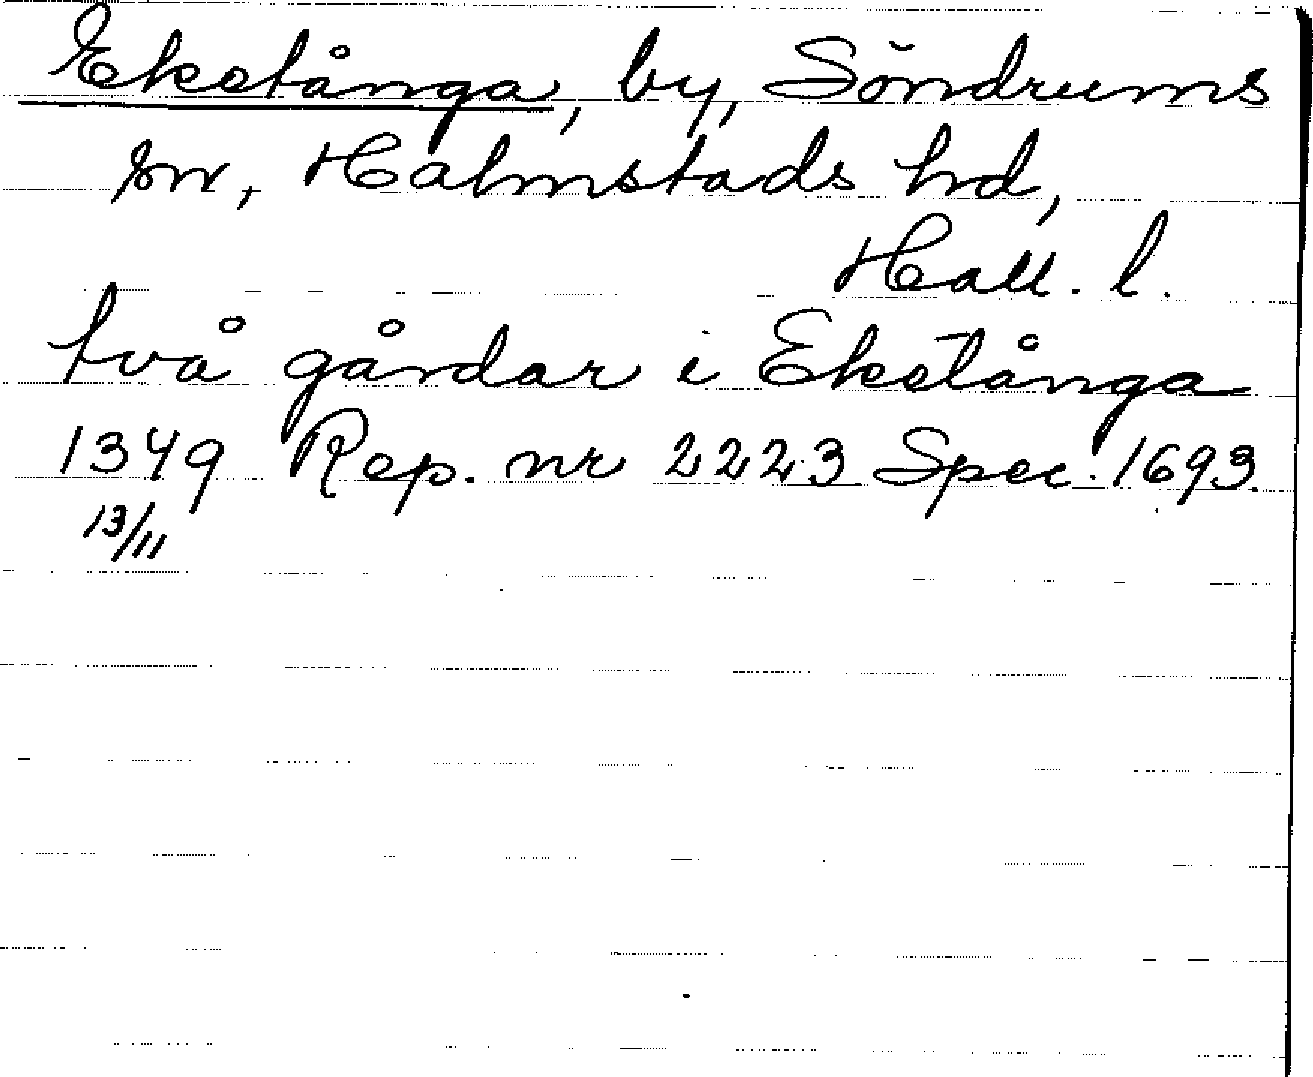 Ekstånga, by, Söndrums
sn, Halmstads hd,
Hall. l.
två gårdar i Ekstånga
1349 Rep. nr 2223 Spec. 1693.
13/11